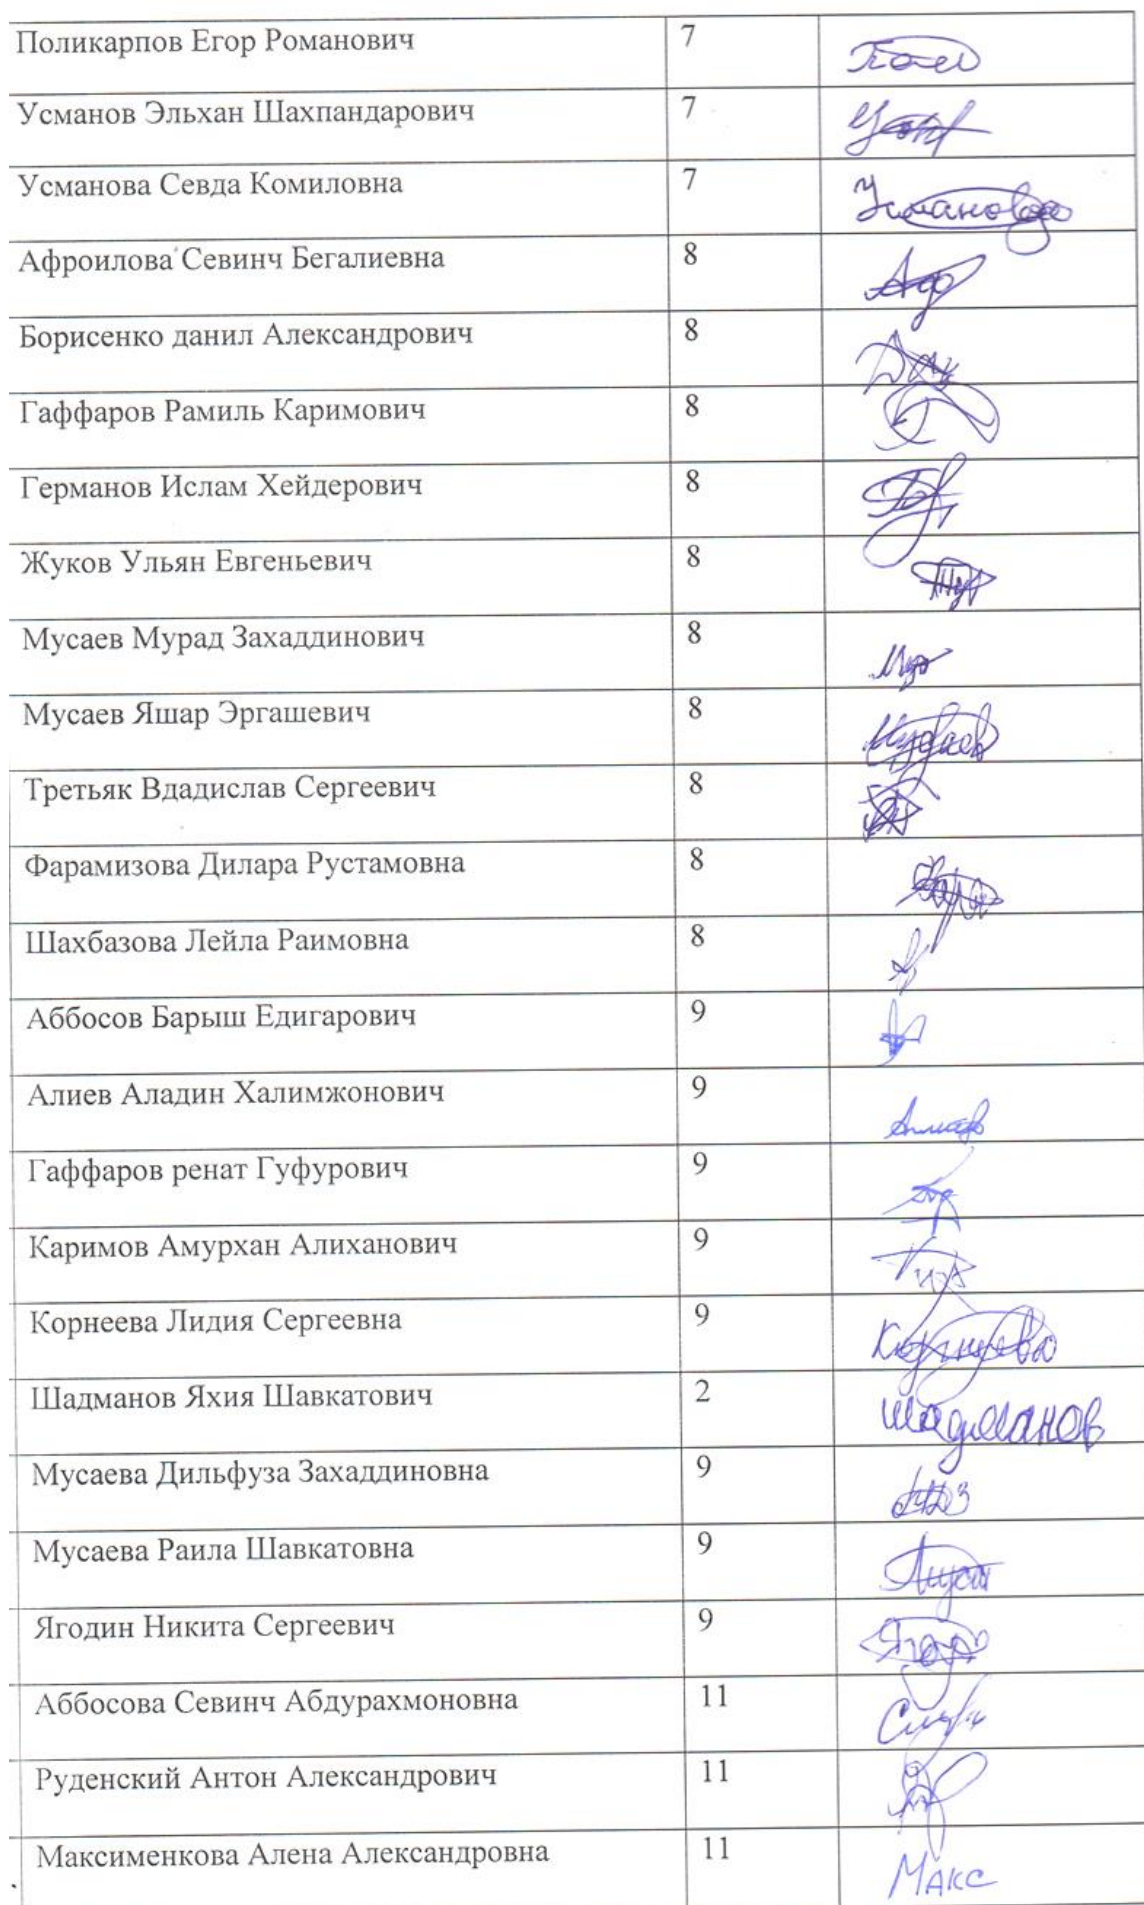 Поликарпов Егор Романович 7
Усманов Эльхан Шахпандарович 7
Усманова Севда Комиловна 7 Усманова
Афроилова Севинч Бегалиевна 8
Борисенко данил Александрович 8
Гаффаров Рамиль Каримович 8
Германов Ислам Хейдерович 8
Жуков Ульян Евгеньевич 8
Мусаев Мурад Захаддинович 8
Мусаев Яшар Эргашевич 8
Третьяк Вдадислав Сергеевич 8
Фарамизова Дилара Рустамовна 8
Шахбазова Лейла Раимовна 8
Аббосов Барыш Едигарович 9
Алиев Аладин Халимжонович 9
Гаффаров ренат Гуфурович 9
Каримов Амурхан Алиханович 9
Корнеева Лидия Сергеевна 9
Шадманов Яхия Шавкатович 2 Шадманов
Мусаева Дильфуза Захаддиновна 9
Мусаева Раила Шавкатовна 9
Ягодин Никита Сергеевич 9
Аббосова Севинч Абдурахмоновна 11
Руденский Антон Александрович 11
Максименкова Алена Александровна 11 Макс